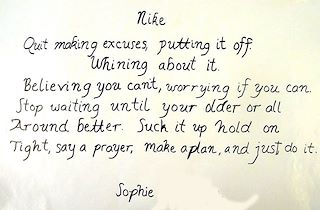 Nike
Quit making excuses, putting it off.
Whining about it.
Believing you can't, worrying if you can.
Stop waiting until your older or all
Around better. Suck it up hold on
Tight, say a prayer, make a plan, and just do it.
Sophie